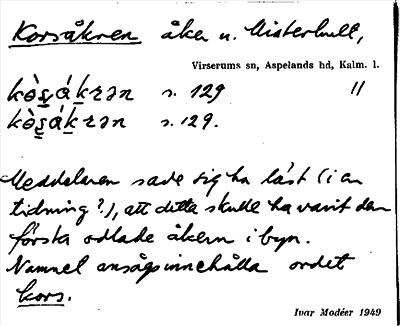 Korsåkren åker u. Misterhult,
Virserums sn, Aspelands hd, Kalm. l.
s. 129 "
s. 129.
Meddelaren sade sig ha läst (i en
tidning?), att detta skulle ha varit den
första odlade åkern i byn.
Namnet ansågs innehålla ordet
kors.
Ivar Modéer 1949